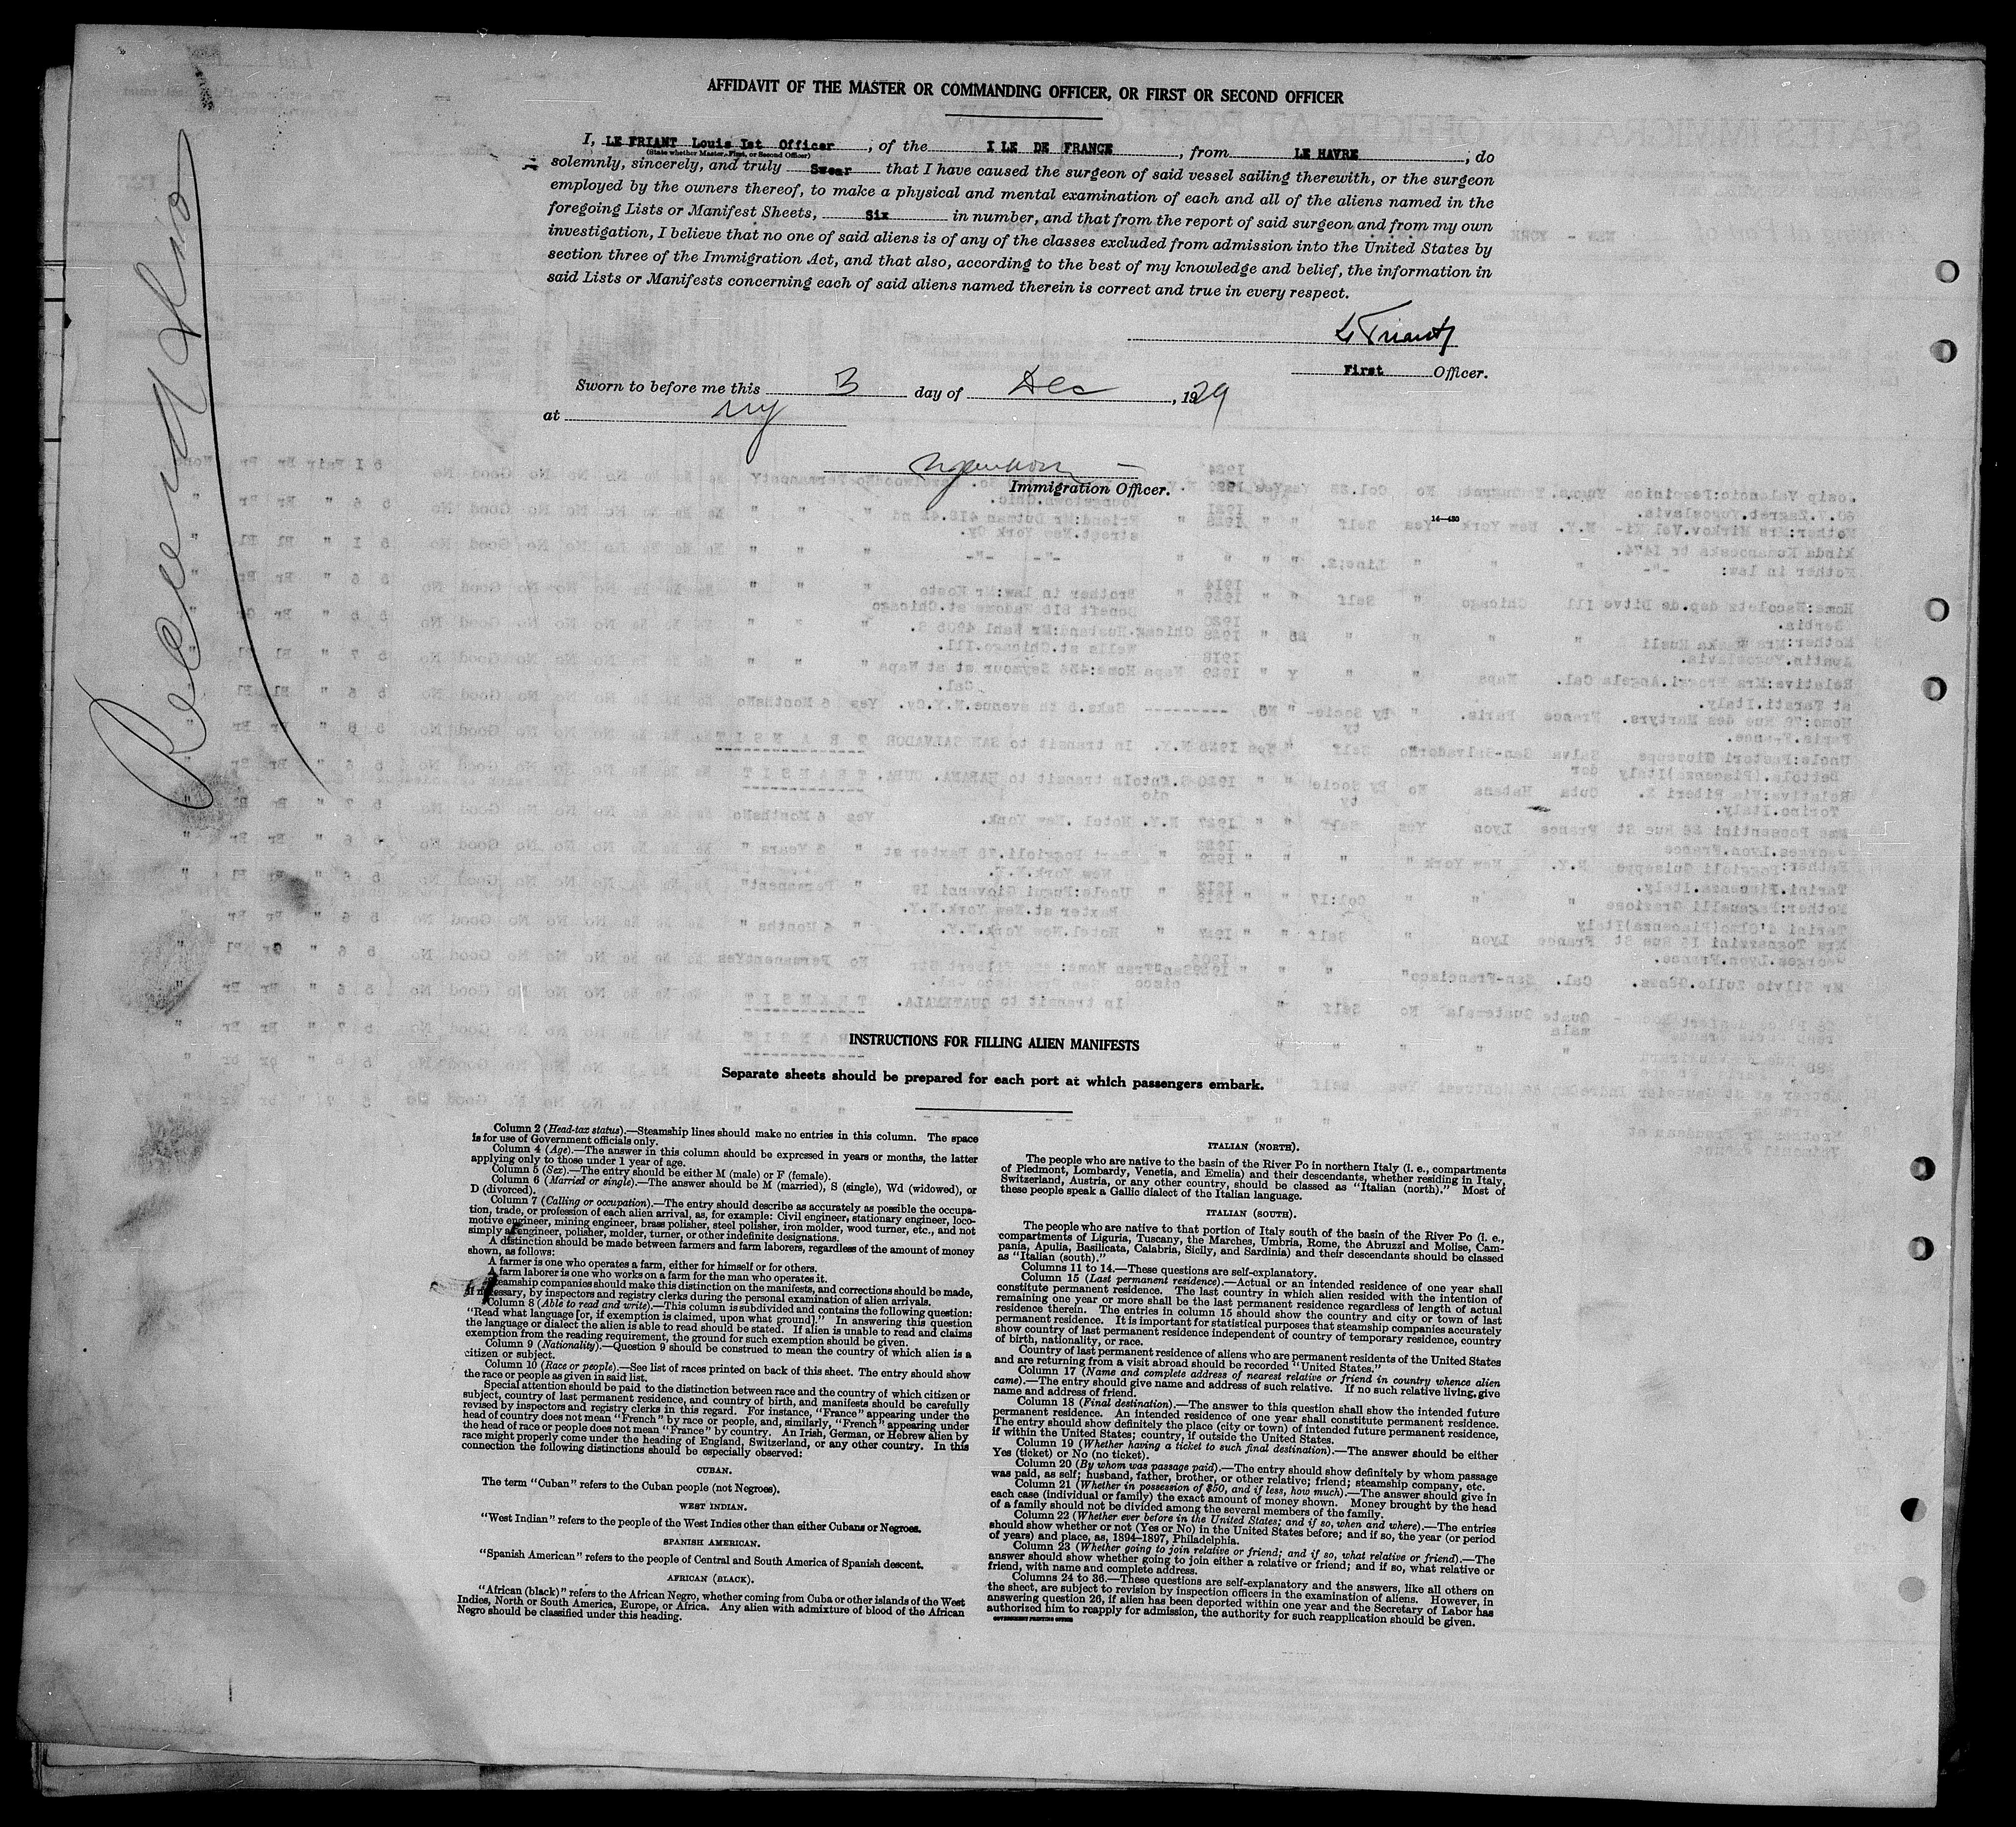 AFFIDAVIT OF THE MASTER OR COMMANDING OFFICER, OR FIRST OR SECOND OFFICER
I, LE FRIANT Louis Ist Officer, of the I LE DE FRANCE, from LE HAVRE, do
(State whether Master, First, or Second Officer)
solemnly, sincerely, and truly Swear that I have caused the surgeon of said vessel sailing therewith, or the surgeon
employed by the owners thereof, to make a physical and mental examination of each and all of the aliens named in the
foregoing Lists or Manifest Sheets, Six in number, and that from the report of said surgeon and from my own
investigation, I believe that no one of said aliens is of any of the classes excluded from admission into the United States by
section three of the Immigration Act, and that also, according to the best of my knowledge and belief, the information in
said Lists or Manifests concerning each of said aliens named therein is correct and true in every respect.
Le Friant
First Officer.
Sworn to before me this 3 day of Dec, 1929
at NY
Immigration Officer.
14—430
INSTRUCTIONS FOR FILLING ALIEN MANIFESTS
Separate sheets should be prepared for each port at which passengers embark.
Column 2 (Head-tax status).—Steamship lines should make no entries in this column. The space
is for use of Government officials only.
Column 4 (Age).—The answer in this column should be expressed in years or months, the latter
applying only to those under 1 year of age.
Column 5 (Sex).—The entry should be either M (male) or F (female).
Column 6 (Married or single).—The answer should be M (married), S (single), Wd (widowed), or
D (divorced).
Column 7 (Calling or occupation).—The entry should describe as accurately as possible the occupa-
tion, trade, or profession of each alien arrival, as, for example: Civil engineer, stationary engineer, loco-
motive engineer, mining engineer, brass polisher, steel polisher, iron molder, wood turner, etc., and not
simply as engineer, polisher, molder, turner, or other indefinite designations.
A distinction should be made between farmers and farm laborers, regardless of the amount of money
shown, as follows:
A farmer is one who operates a farm, either for himself or for others.
A farm laborer is one who works on a farm for the man who operates it.
Steamship companies should make this distinction on the manifests, and corrections should be made,
if necessary, by inspectors and registry clerks during the personal examination of alien arrivals.
Column 8 (Able to read and write).—This column is subdivided and contains the following question:
"Read what language [or, if exemption is claimed, upon what ground]." In answering this question
the language or dialect the alien is able to read should be stated. If alien is unable to read and claims
exemption from the reading requirement, the ground for such exemption should be given.
Column 9 (Nationality).—Question 9 should be construed to mean the country of which alien is a
citizen or subject.
Column 10 (Race or people).—See list of races printed on back of this sheet. The entry should show
the race or people as given in said list.
Special attention should be paid to the distinction between race and the country of which citizen or
subject, country of last permanent residence, and country of birth, and manifests should be carefully
revised by inspectors and registry clerks in this regard. For instance, "France" appearing under the
head of country does not mean "French" by race or people, and, similarly, "French" appearing under
the head of race or people does not mean "France" by country. An Irish, German, or Hebrew alien by
race might properly come under the heading of England, Switzerland, or any other country. In this
connection the following distinctions should be especially observed:
CUBAN.
The term "Cuban" refers to the Cuban people (not Negroes).
WEST INDIAN.
"West Indian" refers to the people of the West Indies other than either Cubans or Negroes.
SPANISH AMERICAN.
"Spanish American" refers to the people of Central and South America of Spanish descent.
AFRICAN (BLACK).
"African (black)" refers to the African Negro, whether coming from Cuba or other islands of the West
Indies, North or South America, Europe, or Africa. Any alien with admixture of blood of the African
Negro should be classified under this heading.
ITALIAN (NORTH).
The people who are native to the basin of the River Po in northern Italy (i. e., compartments
of Piedmont, Lombardy, Venetia, and Emelia) and their descendants, whether residing in Italy,
Switzerland, Austria, or any other country, should be classed as "Italian (north)." Most of
these people speak a Gallic dialect of the Italian language.
ITALIAN (SOUTH).
The people who are native to that portion of Italy south of the basin of the River Po (i. e.,
compartments of Liguria, Tuscany, the Marches, Umbria, Rome, the Abruzzi and Molise, Cam-
pania, Apulia, Basilicata, Calabria, Sicily, and Sardinia) and their descendants should be classed
as "Italian (south)."
Columns 11 to 14.—These questions are self-explanatory.
Column 15 (Last permanent residence).—Actual or an intended residence of one year shall
constitute permanent residence. The last country in which alien resided with the intention of
remaining one year or more shall be the last permanent residence regardless of length of actual
residence therein. The entries in column 15 should show the country and city or town of last
permanent residence. It is important for statistical purposes that steamship companies accurately
show country of last permanent residence independent of country of temporary residence, country
of birth, nationality, or race.
Country of last permanent residence of aliens who are permanent residents of the United States
and are returning from a visit abroad should be recorded "United States."
Column 17 (Name and complete address of nearest relative or friend in country whence alien
came).—The entry should give name and address of such relative. If no such relative living, give
name and address of friend.
Column 18 (Final destination).—The answer to this question shall show the intended future
permanent residence. An intended residence of one year shall constitute permanent residence.
The entry should show definitely the place (city or town) of intended future permanent residence,
if within the United States; country, if outside the United States.
Column 19 (Whether having a ticket to such final destination).—The answer should be either
Yes (ticket) or No (no ticket).
Column 20 (By whom was passage paid).—The entry should show definitely by whom passage
was paid, as self; husband, father, brother, or other relative; friend; steamship company, etc.
Column 21 (Whether in possession of $50, and if less, how much).—The answer should give in
each case (individual or family) the exact amount of money shown. Money brought by the head
of a family should not be divided among the several members of the family.
Column 22 (Whether ever before in the United States; and if so, when and where).—The entries
should show whether or not (Yes or No) in the United States before; and if so, the year (or period
of years) and place, as, 1894–1897, Philadelphia.
Column 23 (Whether going to join relative or friend; and if so, what relative or friend).—The
answer should show whether going to join either a relative or friend; and if so, what relative or
friend, with name and complete address.
Columns 24 to 36.—These questions are self-explanatory and the answers, like all others on
the sheet, are subject to revision by inspection officers in the examination of aliens. However, in
answering question 26, if alien has been deported within one year and the Secretary of Labor has
authorized him to reapply for admission, the authority for such reapplication should be given.
GOVERNMENT PRINTING OFFICE